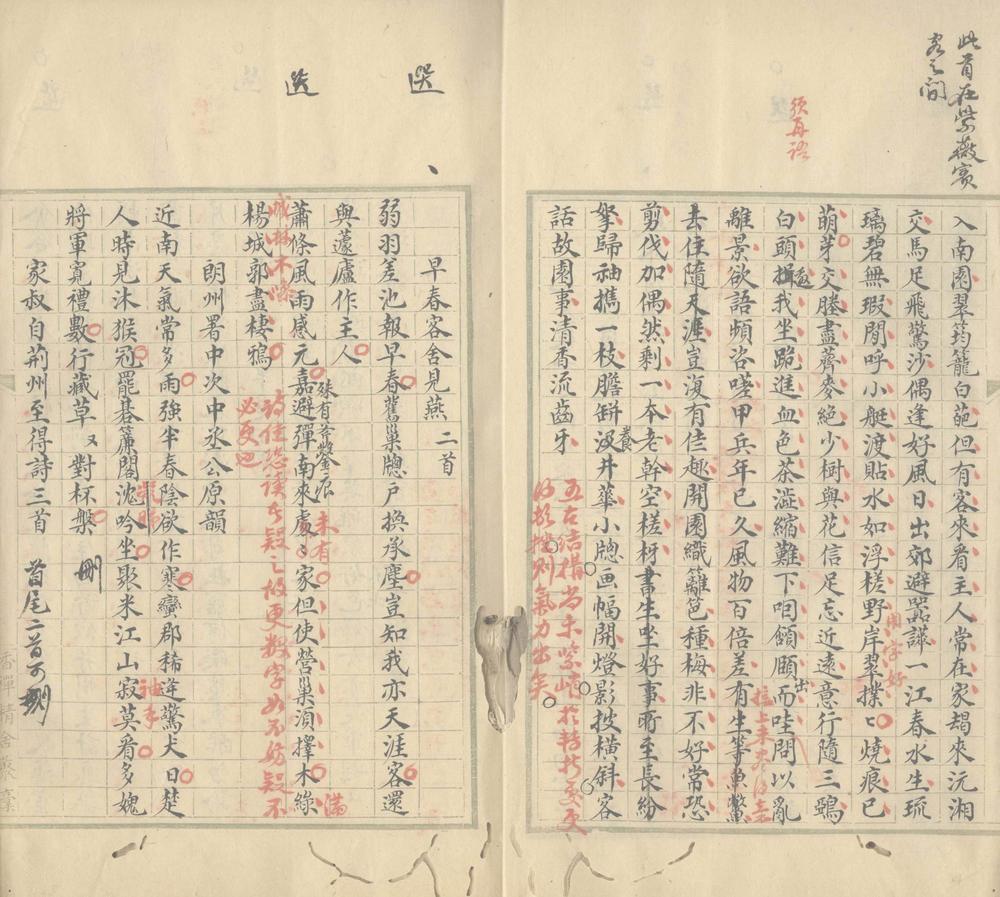 此首在紫薇賓
客之間
須再語
入南園翠筠籠白葩但有客來看主人常在家朅來沅湘
交馬足飛驚沙偶逢好風日出郊避嚣讙一江春水生琉
璃碧無瑕閒呼小艇渡貼水如浮槎野岸翠撲撲燒痕已
萌芽交塍盡薺麥絕少樹與花信足忘近遠意行隨三鵶
白頭揖我坐跪進血色茶澁縮難下咽頷頤而哇問以亂
離景欲語頻咨嗟甲兵年已久風物百倍差有生等魚鱉
去住隨天涯豈復有佳趣開園織籬笆種梅非不好常恐
剪伐加偶然剩一本老幹空槎枒書生坐好事所至長紛
拏歸袖攜一枝膽缾汲井華小牕画幅開燈影披橫斜客
話故園事清香流齒牙
養
出
五古結構尚未緊峭於轉折處更
須拗折則氣力出矣
選
選
早春客舍見燕 二首
弱羽差池報早春舊巢牕戶換承塵豈知我亦天涯客還
與蘧廬作主人
蕭條風雨感元嘉避彈南來處處家但使營巢須擇木綠
楊城郭盡棲鴉
殊有斧鑿痕
未有
滿
城林不條
詩佳恐讀者疑之故更數字如不妨疑不
必更也
朗州署中次中丞公原韻
近南天氣常多雨強半春陰欲作寒蠻郡稀逢驚犬日楚
人時見沐猴冠罷碁簾閣沈吟坐聚米江山寂莫看多媿
將軍寬禮數行藏草又對杯槃
刪
家叔自荊州至得詩三首
首尾二首可刪
香禪精舍叢稾